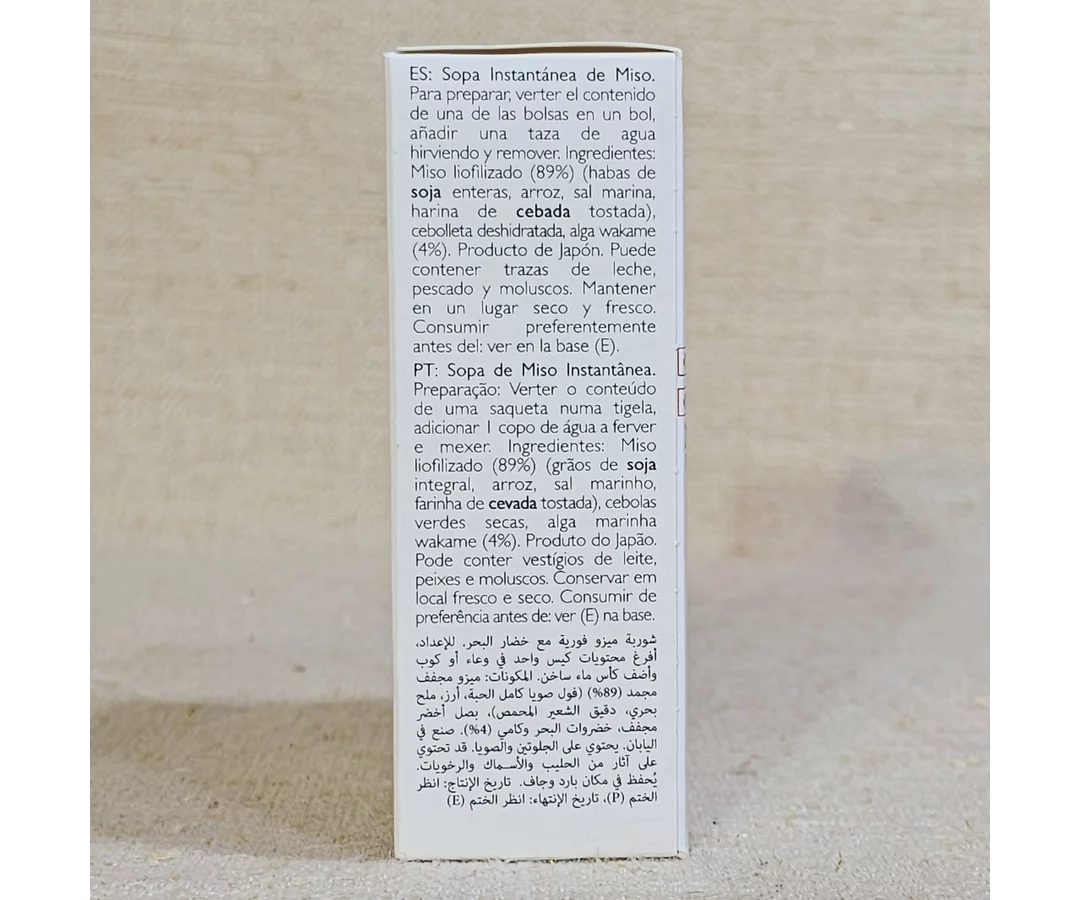 ES: Sopa Instantánea de Miso.
Para preparar, verter el contenido
de una de las bolsas en un bol,
añadir una taza de agua
hirviendo y remover. Ingredientes:
Miso liofilizado (89%) (habas de
soja enteras, arroz, sal marina,
harina de cebada tostada),
cebolleta deshidratada, alga wakame
(4%). Producto de Japón. Puede
contener trazas de leche,
pescado y moluscos. Mantener
en un lugar seco y fresco.
Consumir preferentemente
antes del: ver en la base (E).
PT: Sopa de Miso Instantânea.
Preparação: Verter o conteúdo
de uma saqueta numa tigela,
adicionar 1 copo de água a ferver
e mexer. Ingredientes: Miso
liofilizado (89%) (grãos de soja
integral, arroz, sal marinho,
farinha de cevada tostada), cebolas
verdes secas, alga marinha
wakame (4%). Produto do Japão.
Pode conter vestígios de leite,
peixes e moluscos. Conservar em
local fresco e seco. Consumir de
preferência antes de: ver (E) na base.
شوربة ميزو فورية مع خضار البحر. للإعداد،
أفرغ محتويات كيس واحد في وعاء أو كوب
وأضف كأس ماء ساخن. المكونات: ميزو مجفف
مجمد (89%) (فول صويا كامل الحبة، أرز، ملح
بحري، دقيق الشعير المحمص)، بصل أخضر
مجفف، خضروات البحر وكامي (4%). صنع في
اليابان. يحتوي على الجلوتين والصويا. قد تحتوي
على آثار من الحليب والأسماك والرخويات.
يُحفظ في مكان بارد وجاف. تاريخ الإنتاج: انظر
الختم (P)، تاريخ الإنتهاء: انظر الختم (E)